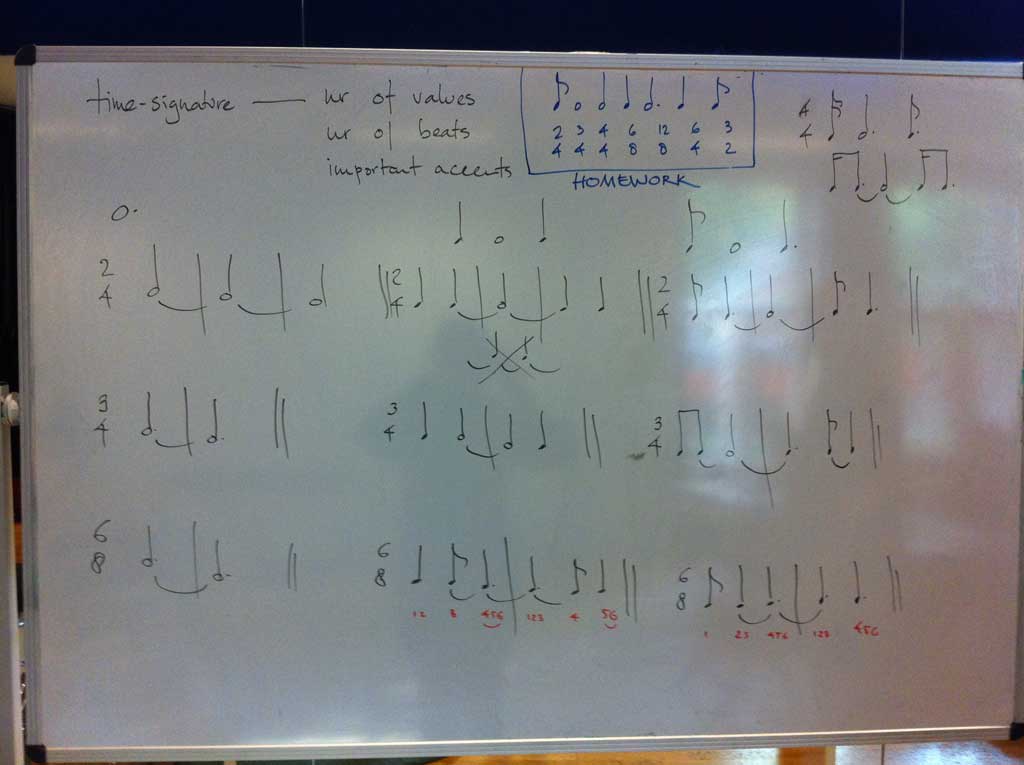 time-signature — nr of values
nr of beats
important accents
2 3 4 6 12 6 3
4 4 4 8 8 4 2
HOMEWORK
4
4
2
4
2
4
2
4
3
4
3
4
3
4
6
8
6
8
12 3 456 123 4 56
6
8
1 23 456 123 456